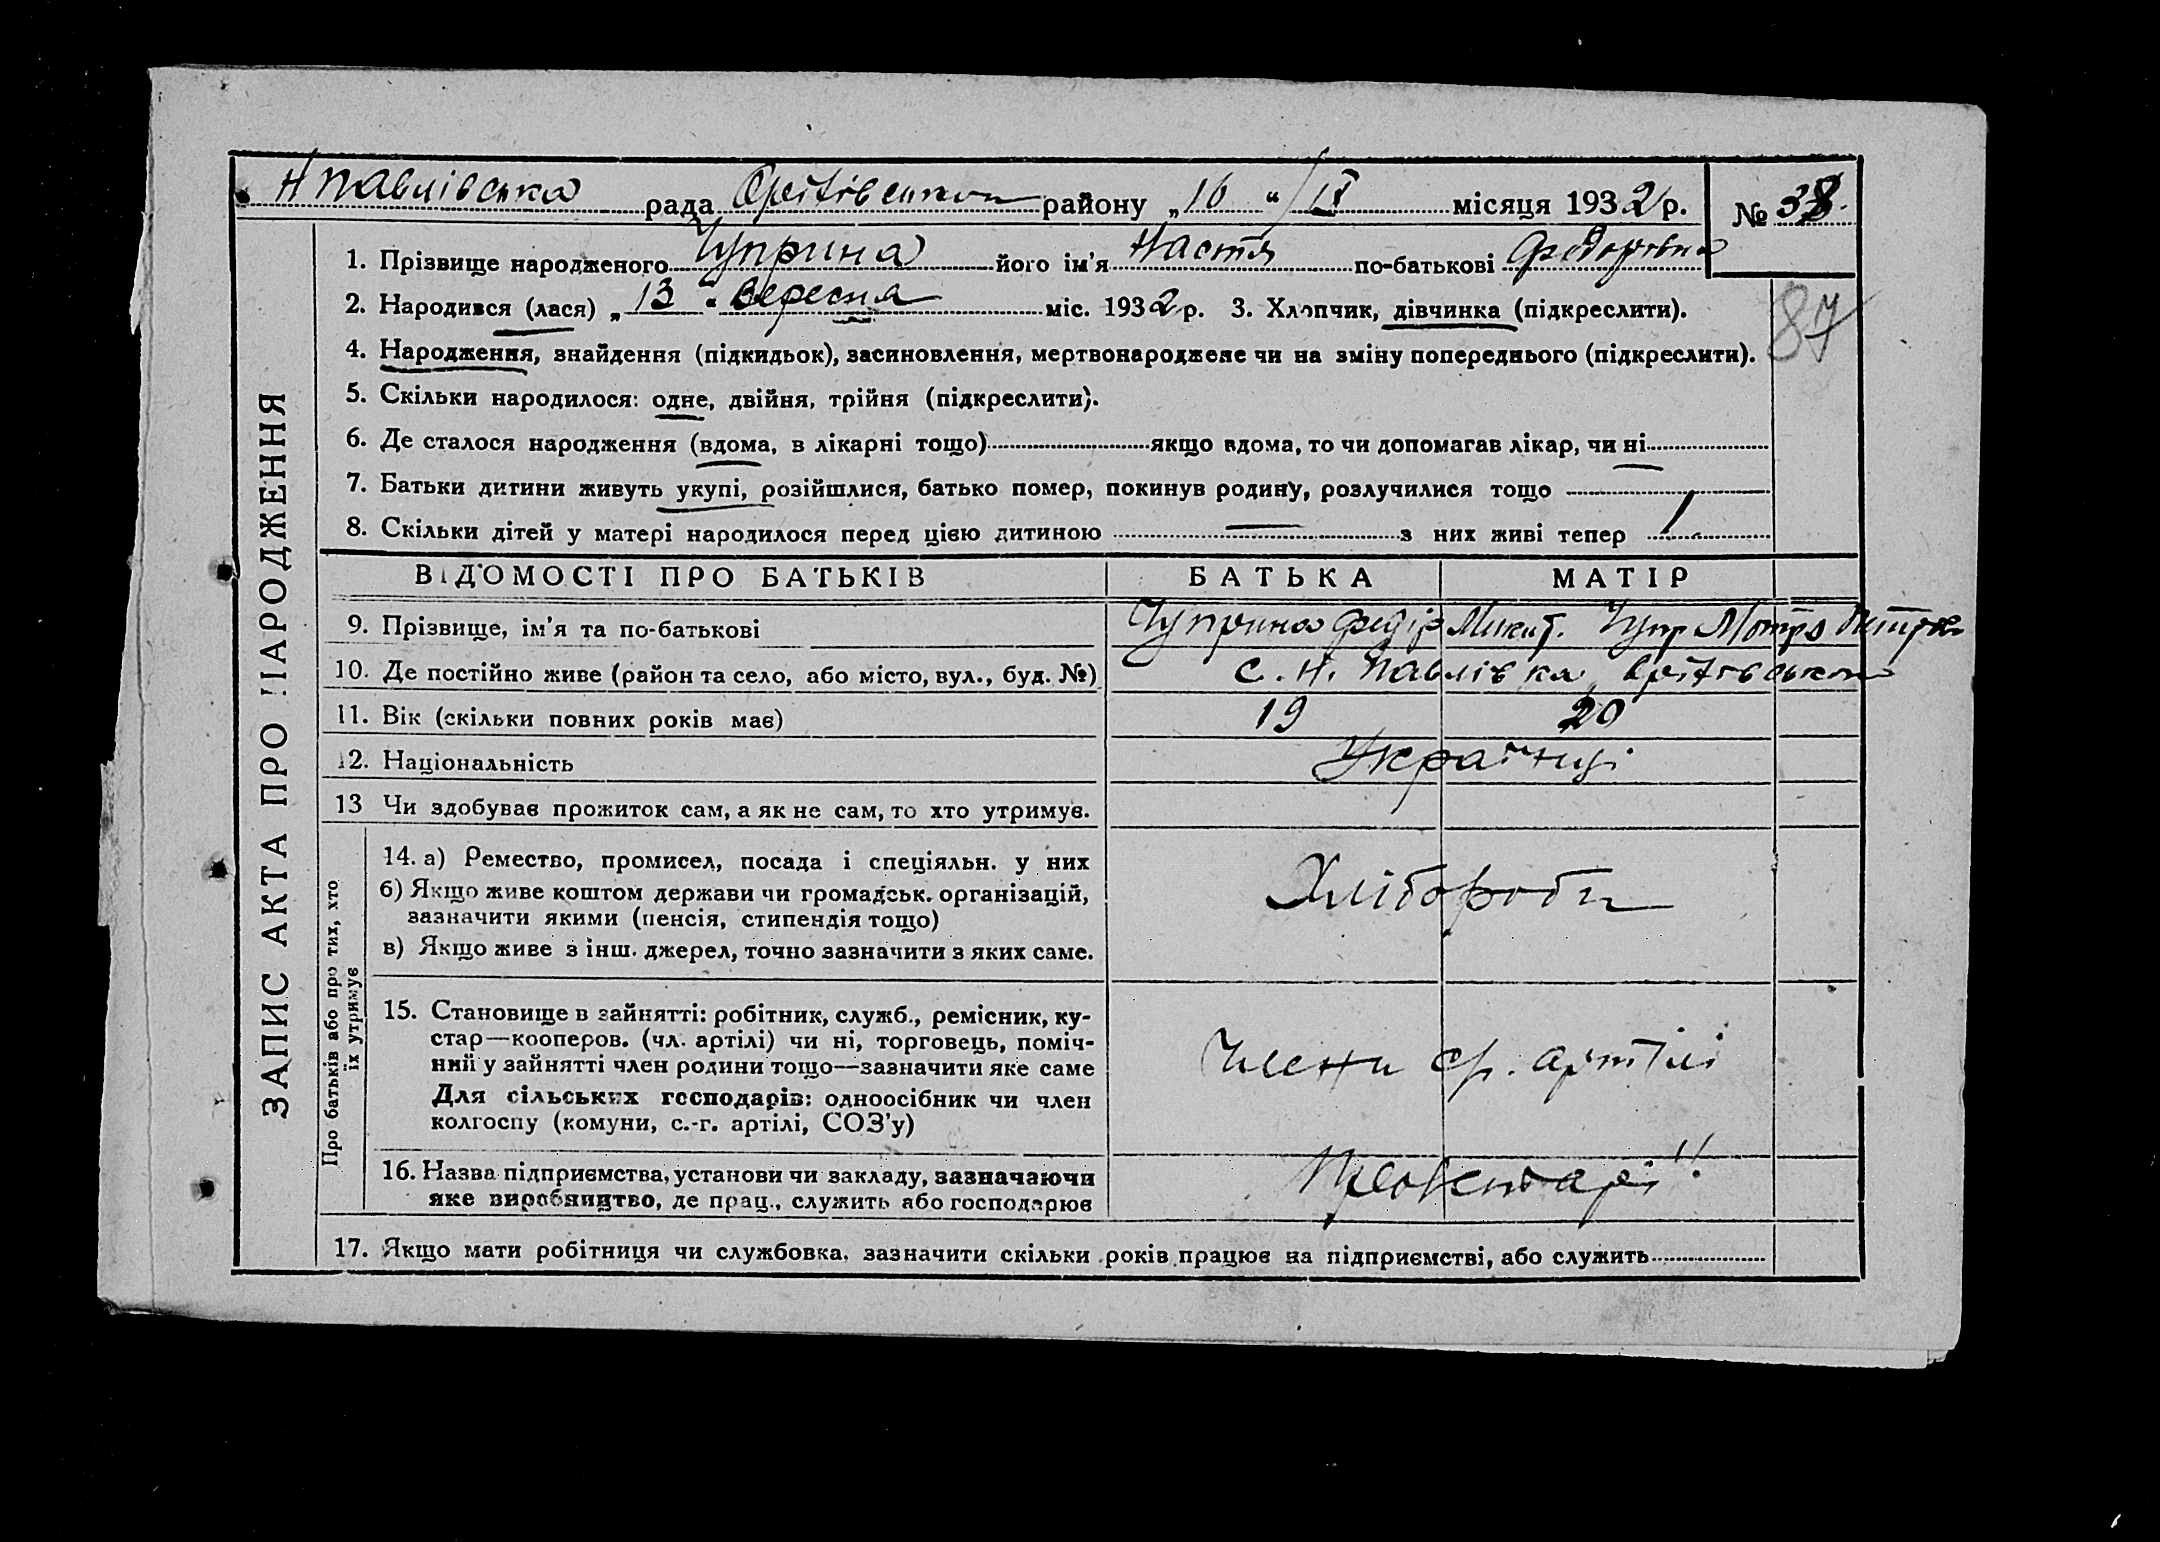 Н Павлівська рада Оріхівського району „16“ IX місяця 1932 р. № 38.
1. Прізвище народженого Чуприна його ім'я Настя по-батькові Федорівна
2. Народився (лася) „13“ вересня міс. 1932 р. 3. Хлопчик, дівчинка (підкреслити).
87
4. Народження, знайдення (підкидьок), засиновлення, мертвонароджене чи на зміну попереднього (підкреслити).
5. Скільки народилося: одне, двійня, трійня (підкреслити).
6. Де сталося народження (вдома, в лікарні тощо) якщо вдома, то чи допомагав лікар, чи ні
7. Батьки дитини живуть укупі, розійшлися, батько помер, покинув родину, розлучилися тощо
8. Скільки дітей у матері народилося перед цією дитиною — з них живі тепер 1
ЗАПИС АКТА ПРО НАРОДЖЕННЯ
ВІДОМОСТІ ПРО БАТЬКІВ БАТЬКА МАТІР
9. Прізвище, ім'я та по-батькові Чуприна Федір Микит. Чупр Мотря Петров
10. Де постійно живе (район та село, або місто, вул., буд. №) с. Н. Павлівка, Оріхівського
11. Вік (скільки повних років має) 19 20
12. Національність Українці
13 Чи здобуває прожиток сам, а як не сам, то хто утримує.
Про батьків або про тих, хто
їх утримує
14. а) Ремество, промисел, посада і спеціяльн. у них
б) Якщо живе коштом держави чи громадськ. організацій,
зазначити якими (пенсія, стипендія тощо)
в) Якщо живе з інш. джерел, точно зазначити з яких саме.
Хлібороби
15. Становище в зайнятті: робітник, служб., ремісник, ку-
стар—кооперов. (чл. артілі) чи ні, торговець, поміч-
ний у зайнятті член родини тощо—зазначити яке саме
Для сільських господарів: одноосібник чи член
колгоспу (комуни, с.-г. артілі, СОЗ'у)
Члени ср. артілі
16. Назва підприємства, установи чи закладу, зазначаючи
яке виробництво, де прац., служить або господарює
17. Якщо мати робітниця чи службовка, зазначити скільки років працює на підприємстві, або служить